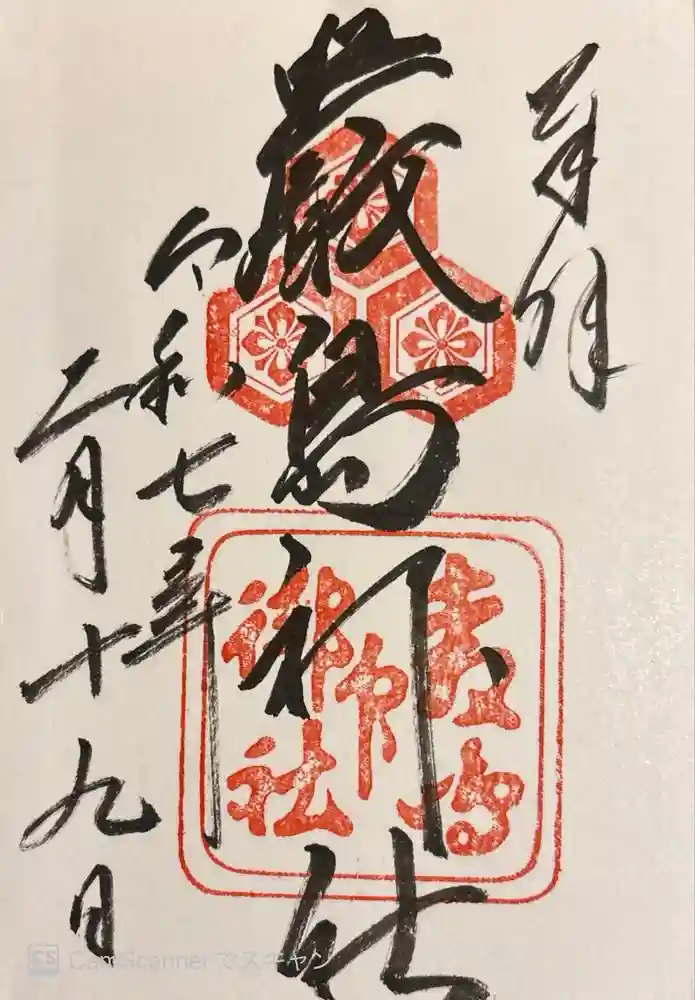 奉拝
厳島神社
令和七年
二月十九日
CS CamScannerでスキャン